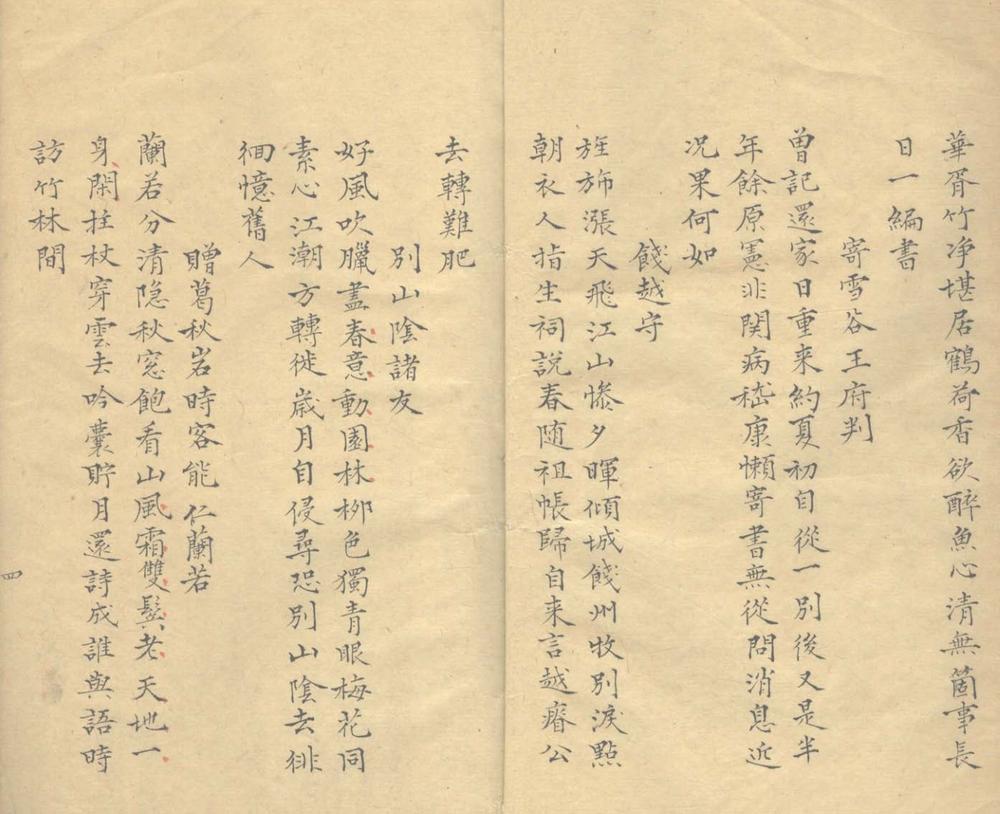 華胥竹净堪居鶴荷香欲醉魚心清無箇事長
日一編書
寄雪谷王府判
曽記還家日重来約夏初自從一別後又是半
年餘原憲非関病嵇康懶寄書無從問消息近
况果何如
餞越守
旌斾漲天飛江山慘夕暉傾城餞州牧別淚點
朝衣人指生祠說春随祖帳歸自来言越瘠公
去轉難肥
別山陰諸友
好風吹臘盡春意動園林栁色獨青眼梅花同
素心江潮方轉徙歳月自侵尋恐別山陰去徘
徊憶舊人
贈葛秋岩時客能仁蘭若
蘭若分清隐秋窓飽看山風霜雙鬂老天地一
身閑拄杖穿雲去吟囊貯月還詩成誰與語時
訪竹林間
四